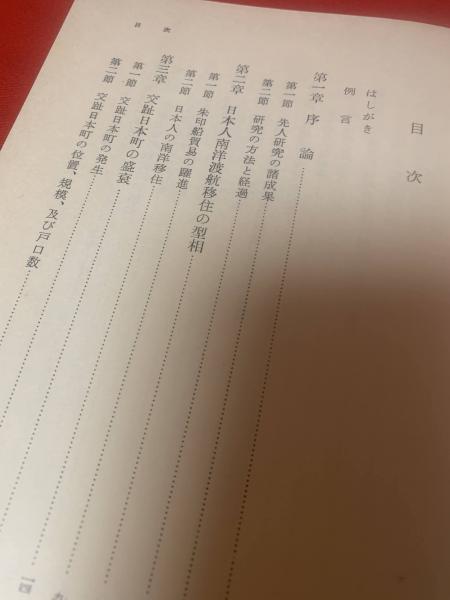 目次
はしがき
例言
第一章 序論
第一節 先人研究の諸成果
第二節 研究の方法と経過
第二章 日本人南洋渡航移住の型相
第一節 朱印船貿易の躍進
第二節 日本人の南洋移住
第三章 交趾日本町の盛衰
第一節 交趾日本町の発生
第二節 交趾日本町の位置、規模、及び戸口数
目次